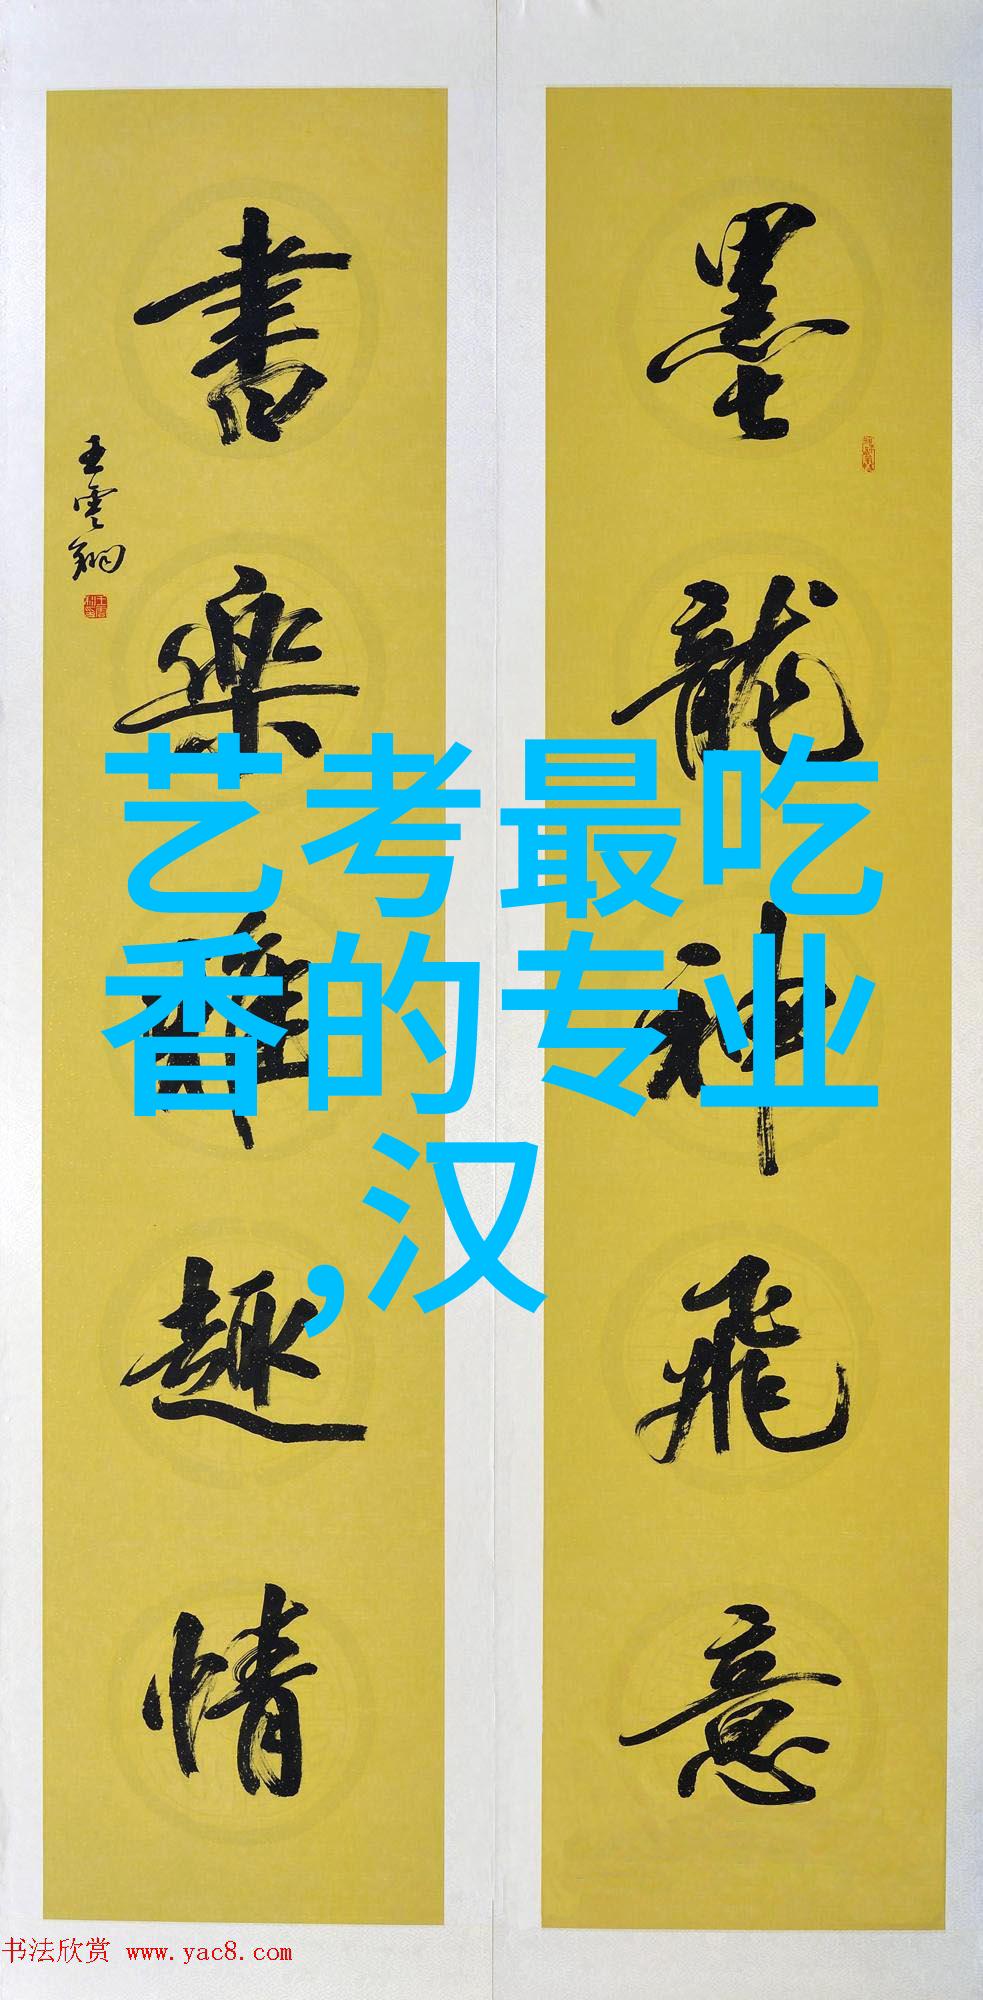 墨龍神飛意
書樂趣情
王雲翔
艺考最吃
香的专业
,汉
书法欣赏 www.yac8.com